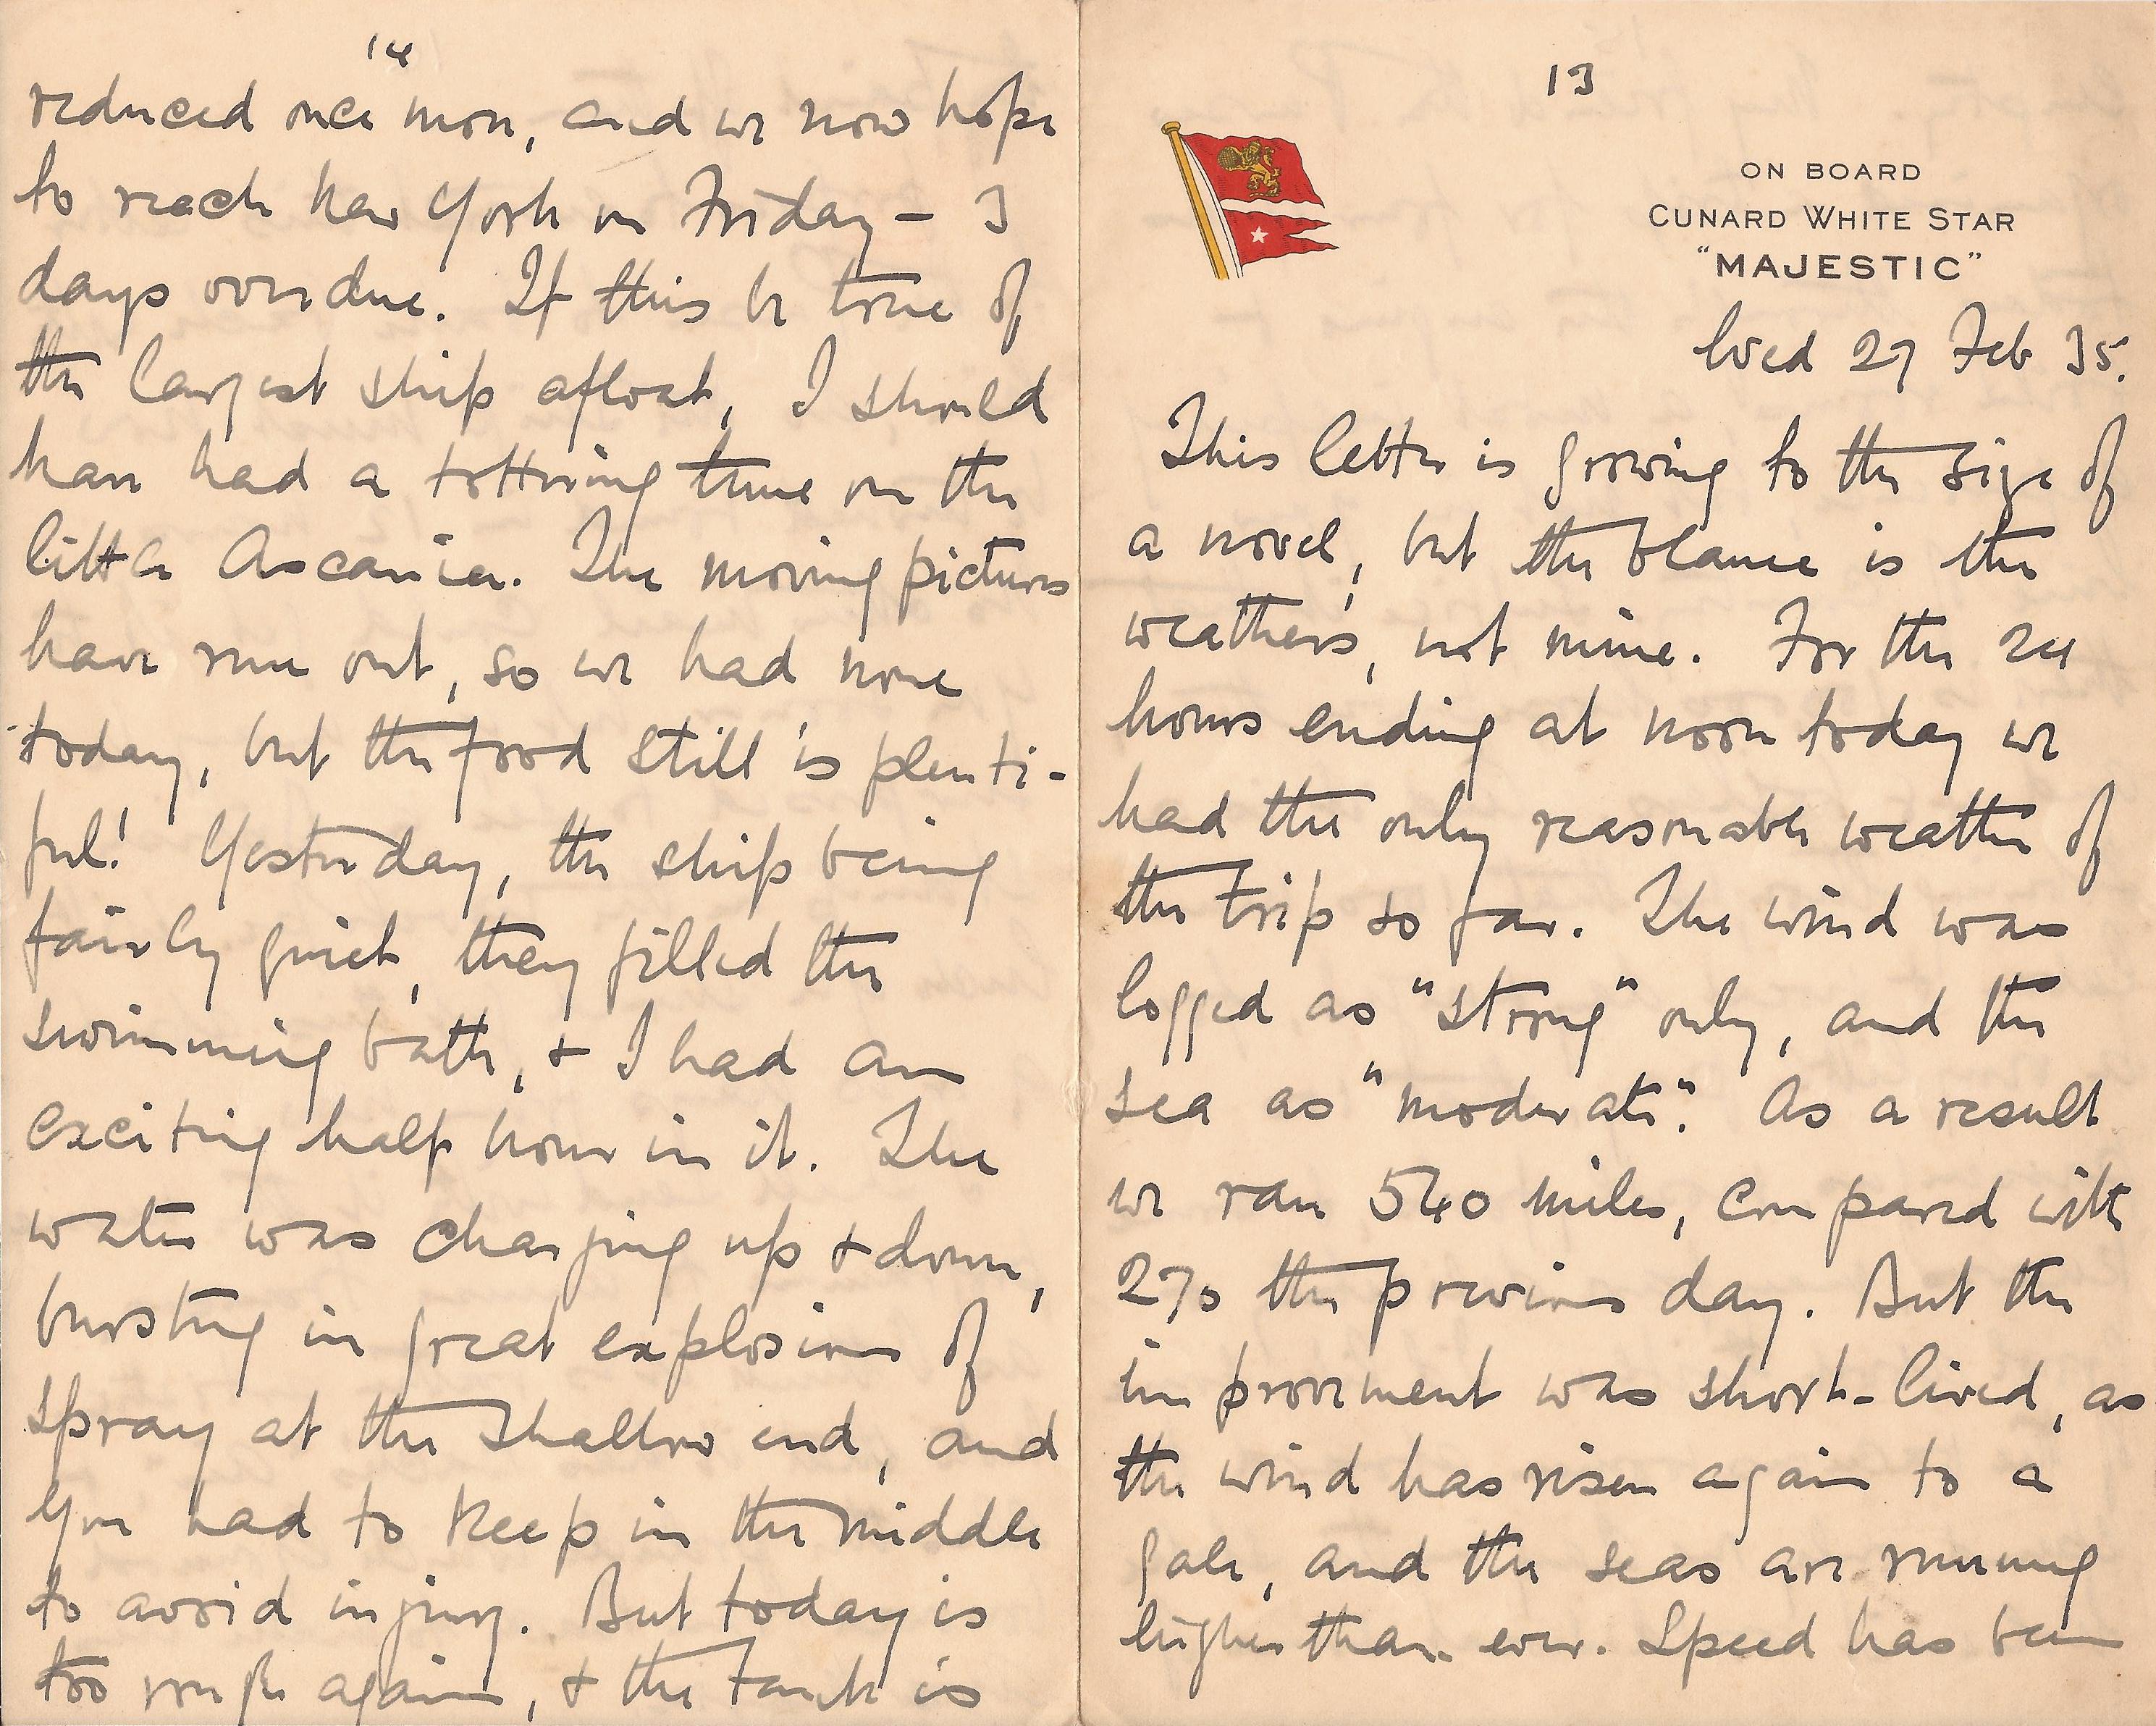 13
ON BOARD
CUNARD WHITE STAR
"MAJESTIC"
Wed 27 Feb 35.
This letter is growing to the size of
a novel, but the blame is the
weather's, not mine. For the 24
hours ending at noon today we
had the only reasonable weather of
the trip so far. The wind was
logged as "strong" only, and the
sea as "moderate". As a result
we ran 540 miles, compared with
270 the previous day. But the
improvement was short-lived, as
the wind has risen again to a
gale, and the seas are running
higher than ever. Speed has been
14
reduced once more, and we now hope
to reach New York on Friday - 3
days overdue. If this be true of
the largest ship afloat, I should
have had a tottering time on the
little Ascania. The moving pictures
have run out, so we had none
today, but the food still is plenti-
ful! Yesterday, the ship being
fairly quiet, they filled the
swimming bath, & I had an
exciting half hour in it. The
water was charging up & down,
bursting in great explosions of
spray at the shallow end, and
you had to keep in the middle
to avoid injury. But today is
too rough again, & the tank is